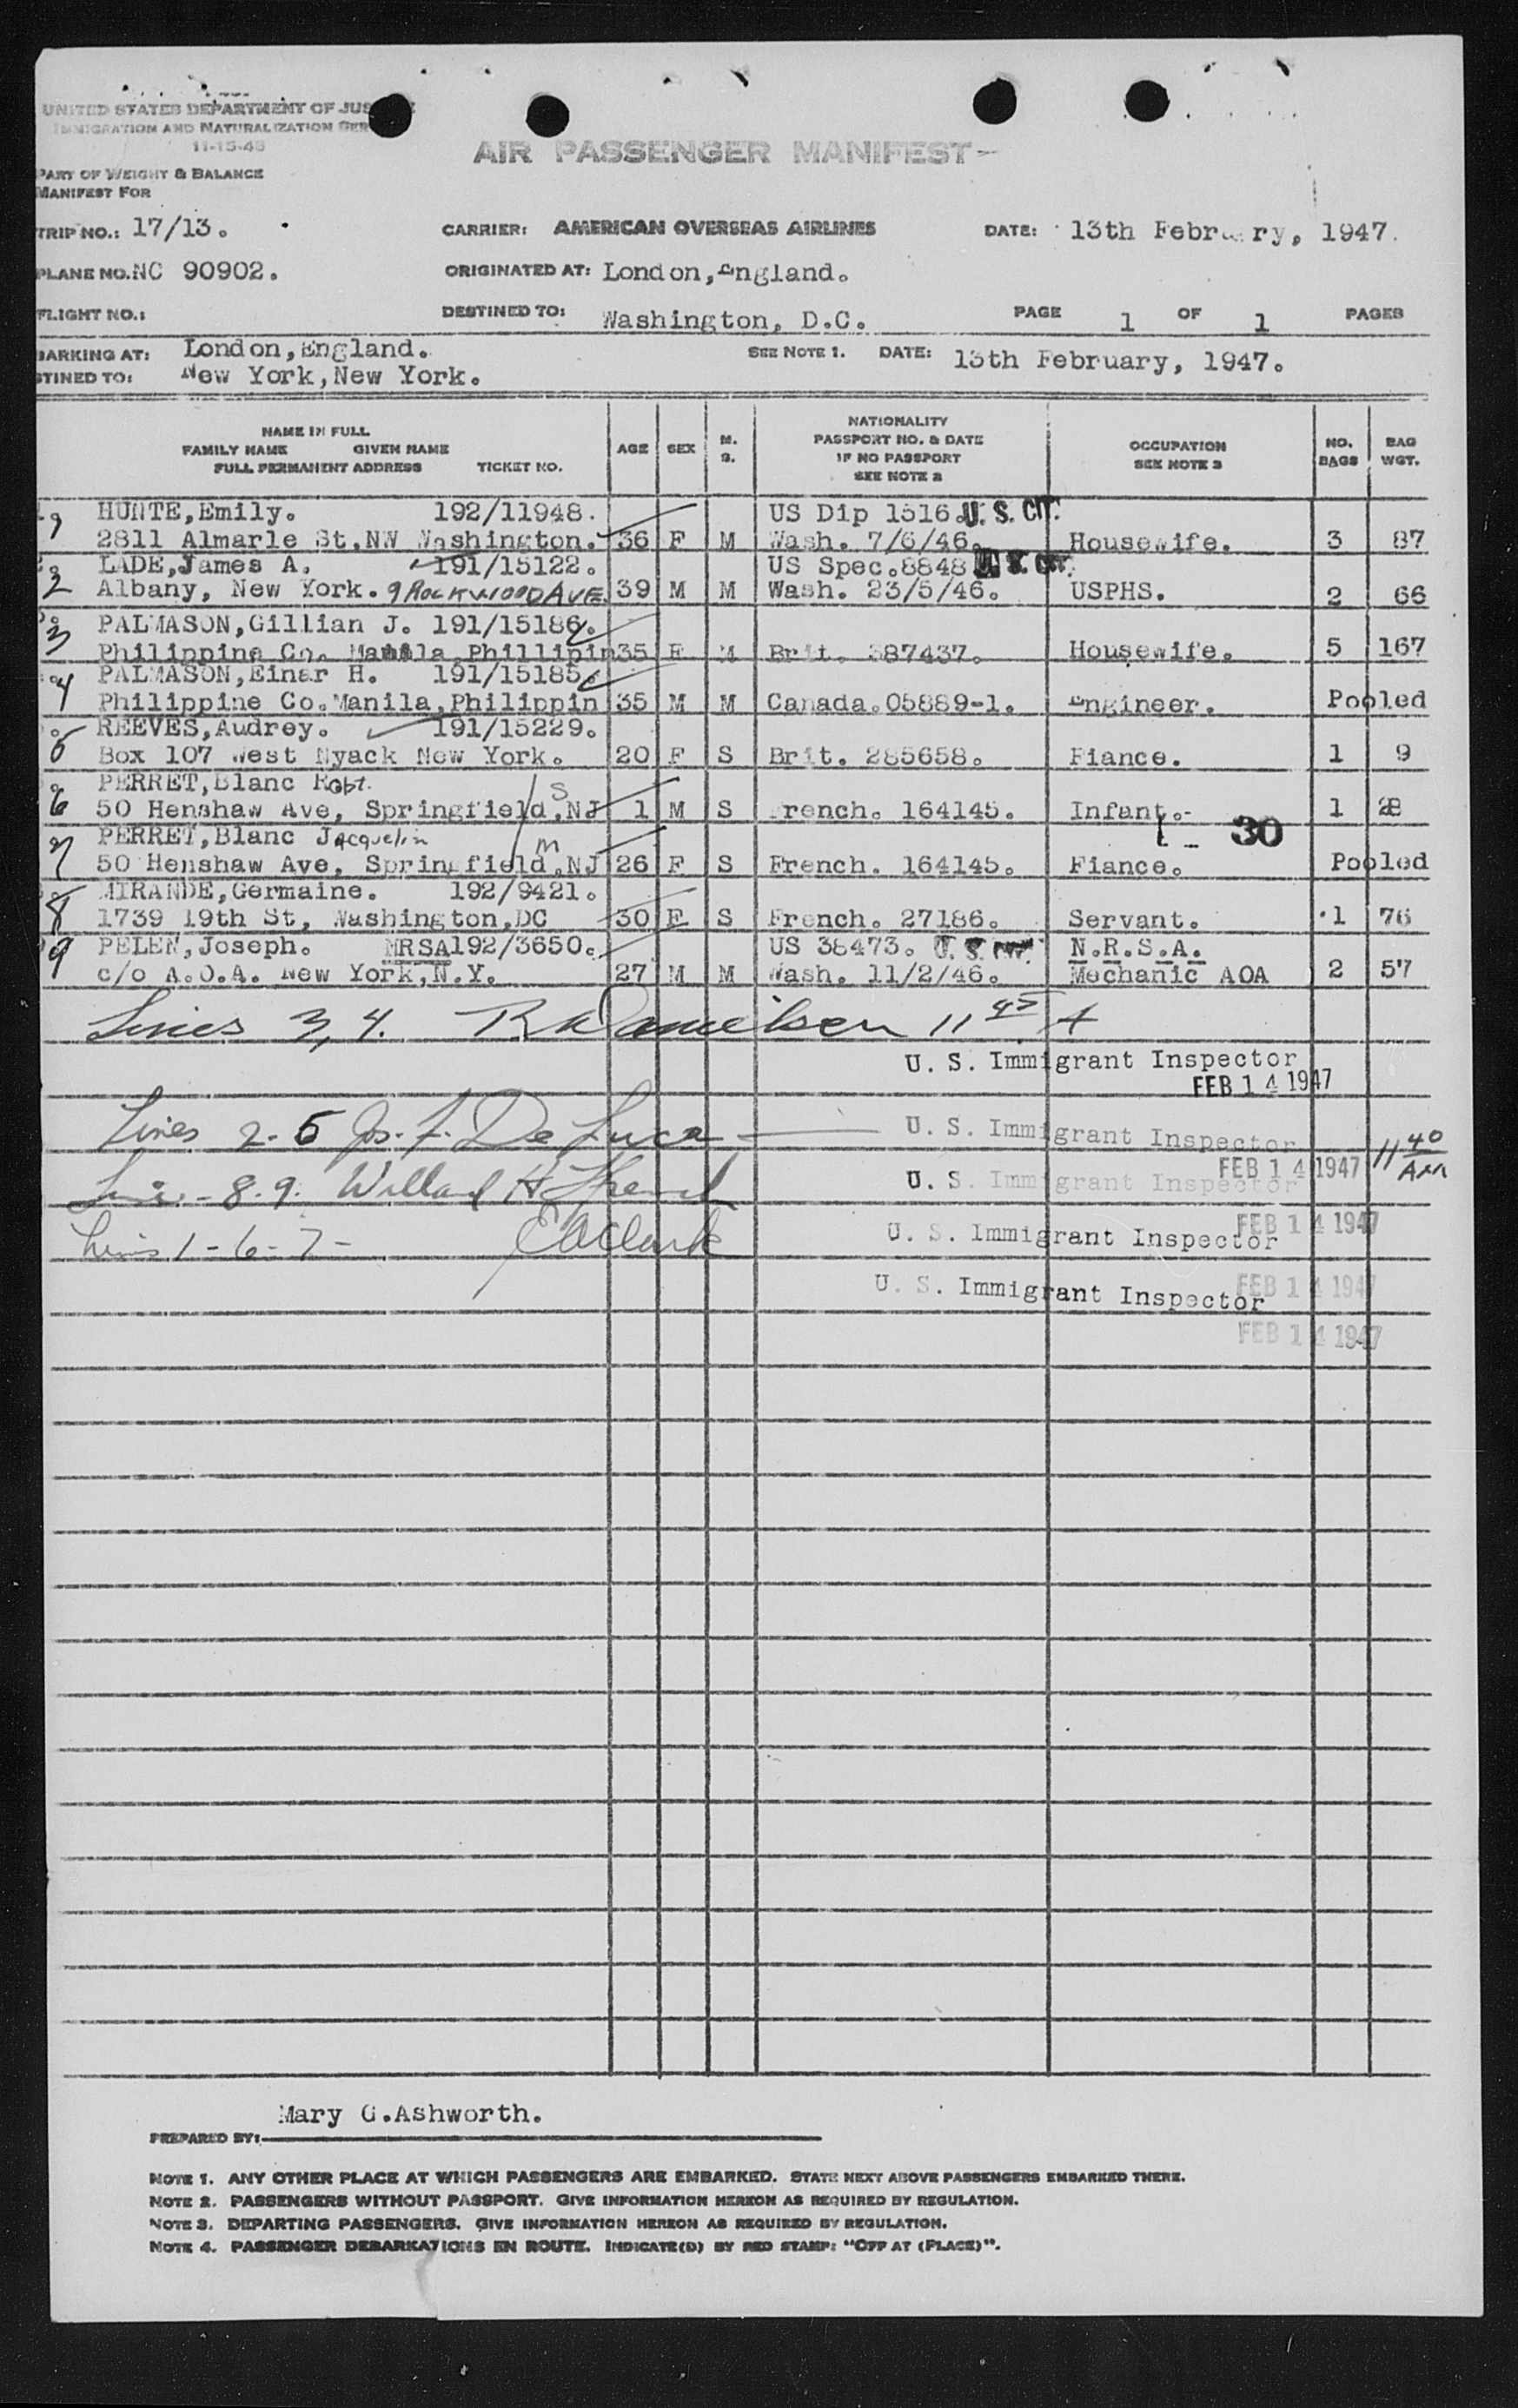 UNITED STATES DEPARTMENT OF JUS
IMMIGRATION AND NATURALIZATION SER
11-15-45
AIR PASSENGER MANIFEST
PART OF WEIGHT & BALANCE
MANIFEST FOR
TRIP NO.: 17/13. CARRIER: AMERICAN OVERSEAS AIRLINES DATE: 13th February, 1947.
PLANE NO. NC 90902. ORIGINATED AT: London, England.
FLIGHT NO.: DESTINED TO: Washington, D.C. PAGE 1 OF 1 PAGES
BARKING AT: London, England. SEE NOTE 1. DATE: 13th February, 1947.
STINED TO: New York, New York.
NAME IN FULL
FAMILY NAME GIVEN NAME
FULL PERMANENT ADDRESS TICKET NO.
AGE SEX M. S.
NATIONALITY
PASSPORT NO. & DATE
IF NO PASSPORT
SEE NOTE 2
OCCUPATION
SEE NOTE 3
NO. BAGS
BAG WGT.
1 HUNTE, Emily. 192/11948. US Dip 1516. U. S. CIT.
2811 Almarle St. NW Washington. 36 F M Wash. 7/6/46. Housewife. 3 87
2 LADE, James A. 191/15122. US Spec. 8848 U. S. CIT.
Albany, New York. 9 ROCKWOOD AVE. 39 M M Wash. 23/5/46. USPHS. 2 66
3 PALMASON, Gillian J. 191/15186.
Philippine Co. Manila Phillipin 35 F M Brit. 387437. Housewife. 5 167
4 PALMASON, Einar H. 191/15185.
Philippine Co. Manila, Philippin 35 M M Canada. 05889-1. Engineer. Pooled
5 REEVES, Audrey. 191/15229.
Box 107 West Nyack New York. 20 F S Brit. 285658. Fiance. 1 9
6 PERRET, Blanc Robt. S
50 Henshaw Ave, Springfield, NJ 1 M S French. 164145. Infant. 1 28
7 PERRET, Blanc Jacquelin m 30
50 Henshaw Ave, Springfield, NJ 26 F S French. 164145. Fiance. Pooled
8 MIRANDE, Germaine. 192/9421.
1739 19th St, Washington, DC 30 F S French. 27186. Servant. 1 76
9 PELEN, Joseph. MRSA 192/3650. US 38473. U. S. CIT. N.R.S.A.
c/o A.O.A. New York, N.Y. 27 M M Wash. 11/2/46. Mechanic AOA 2 57
Lines 3, 4. R Danielsen 11 45 A
U. S. Immigrant Inspector
FEB 14 1947
Lines 2-5 Jos. F. De Luca U. S. Immigrant Inspector 11 40 AM
FEB 14 1947
Lines - 8. 9. Willard H U. S. Immigrant Inspector
FEB 14 1947
Lines 1-6-7- E A Clark U. S. Immigrant Inspector
FEB 14 1947
U. S. Immigrant Inspector
FEB 14 1947
Mary G. Ashworth.
PREPARED BY:
NOTE 1. ANY OTHER PLACE AT WHICH PASSENGERS ARE EMBARKED. STATE NEXT ABOVE PASSENGERS EMBARKED THERE.
NOTE 2. PASSENGERS WITHOUT PASSPORT. GIVE INFORMATION HEREON AS REQUIRED BY REGULATION.
NOTE 3. DEPARTING PASSENGERS. GIVE INFORMATION HEREON AS REQUIRED BY REGULATION.
NOTE 4. PASSENGER DEBARKATIONS EN ROUTE. INDICATE(D) BY RED STAMP: "OFF AT (PLACE)".